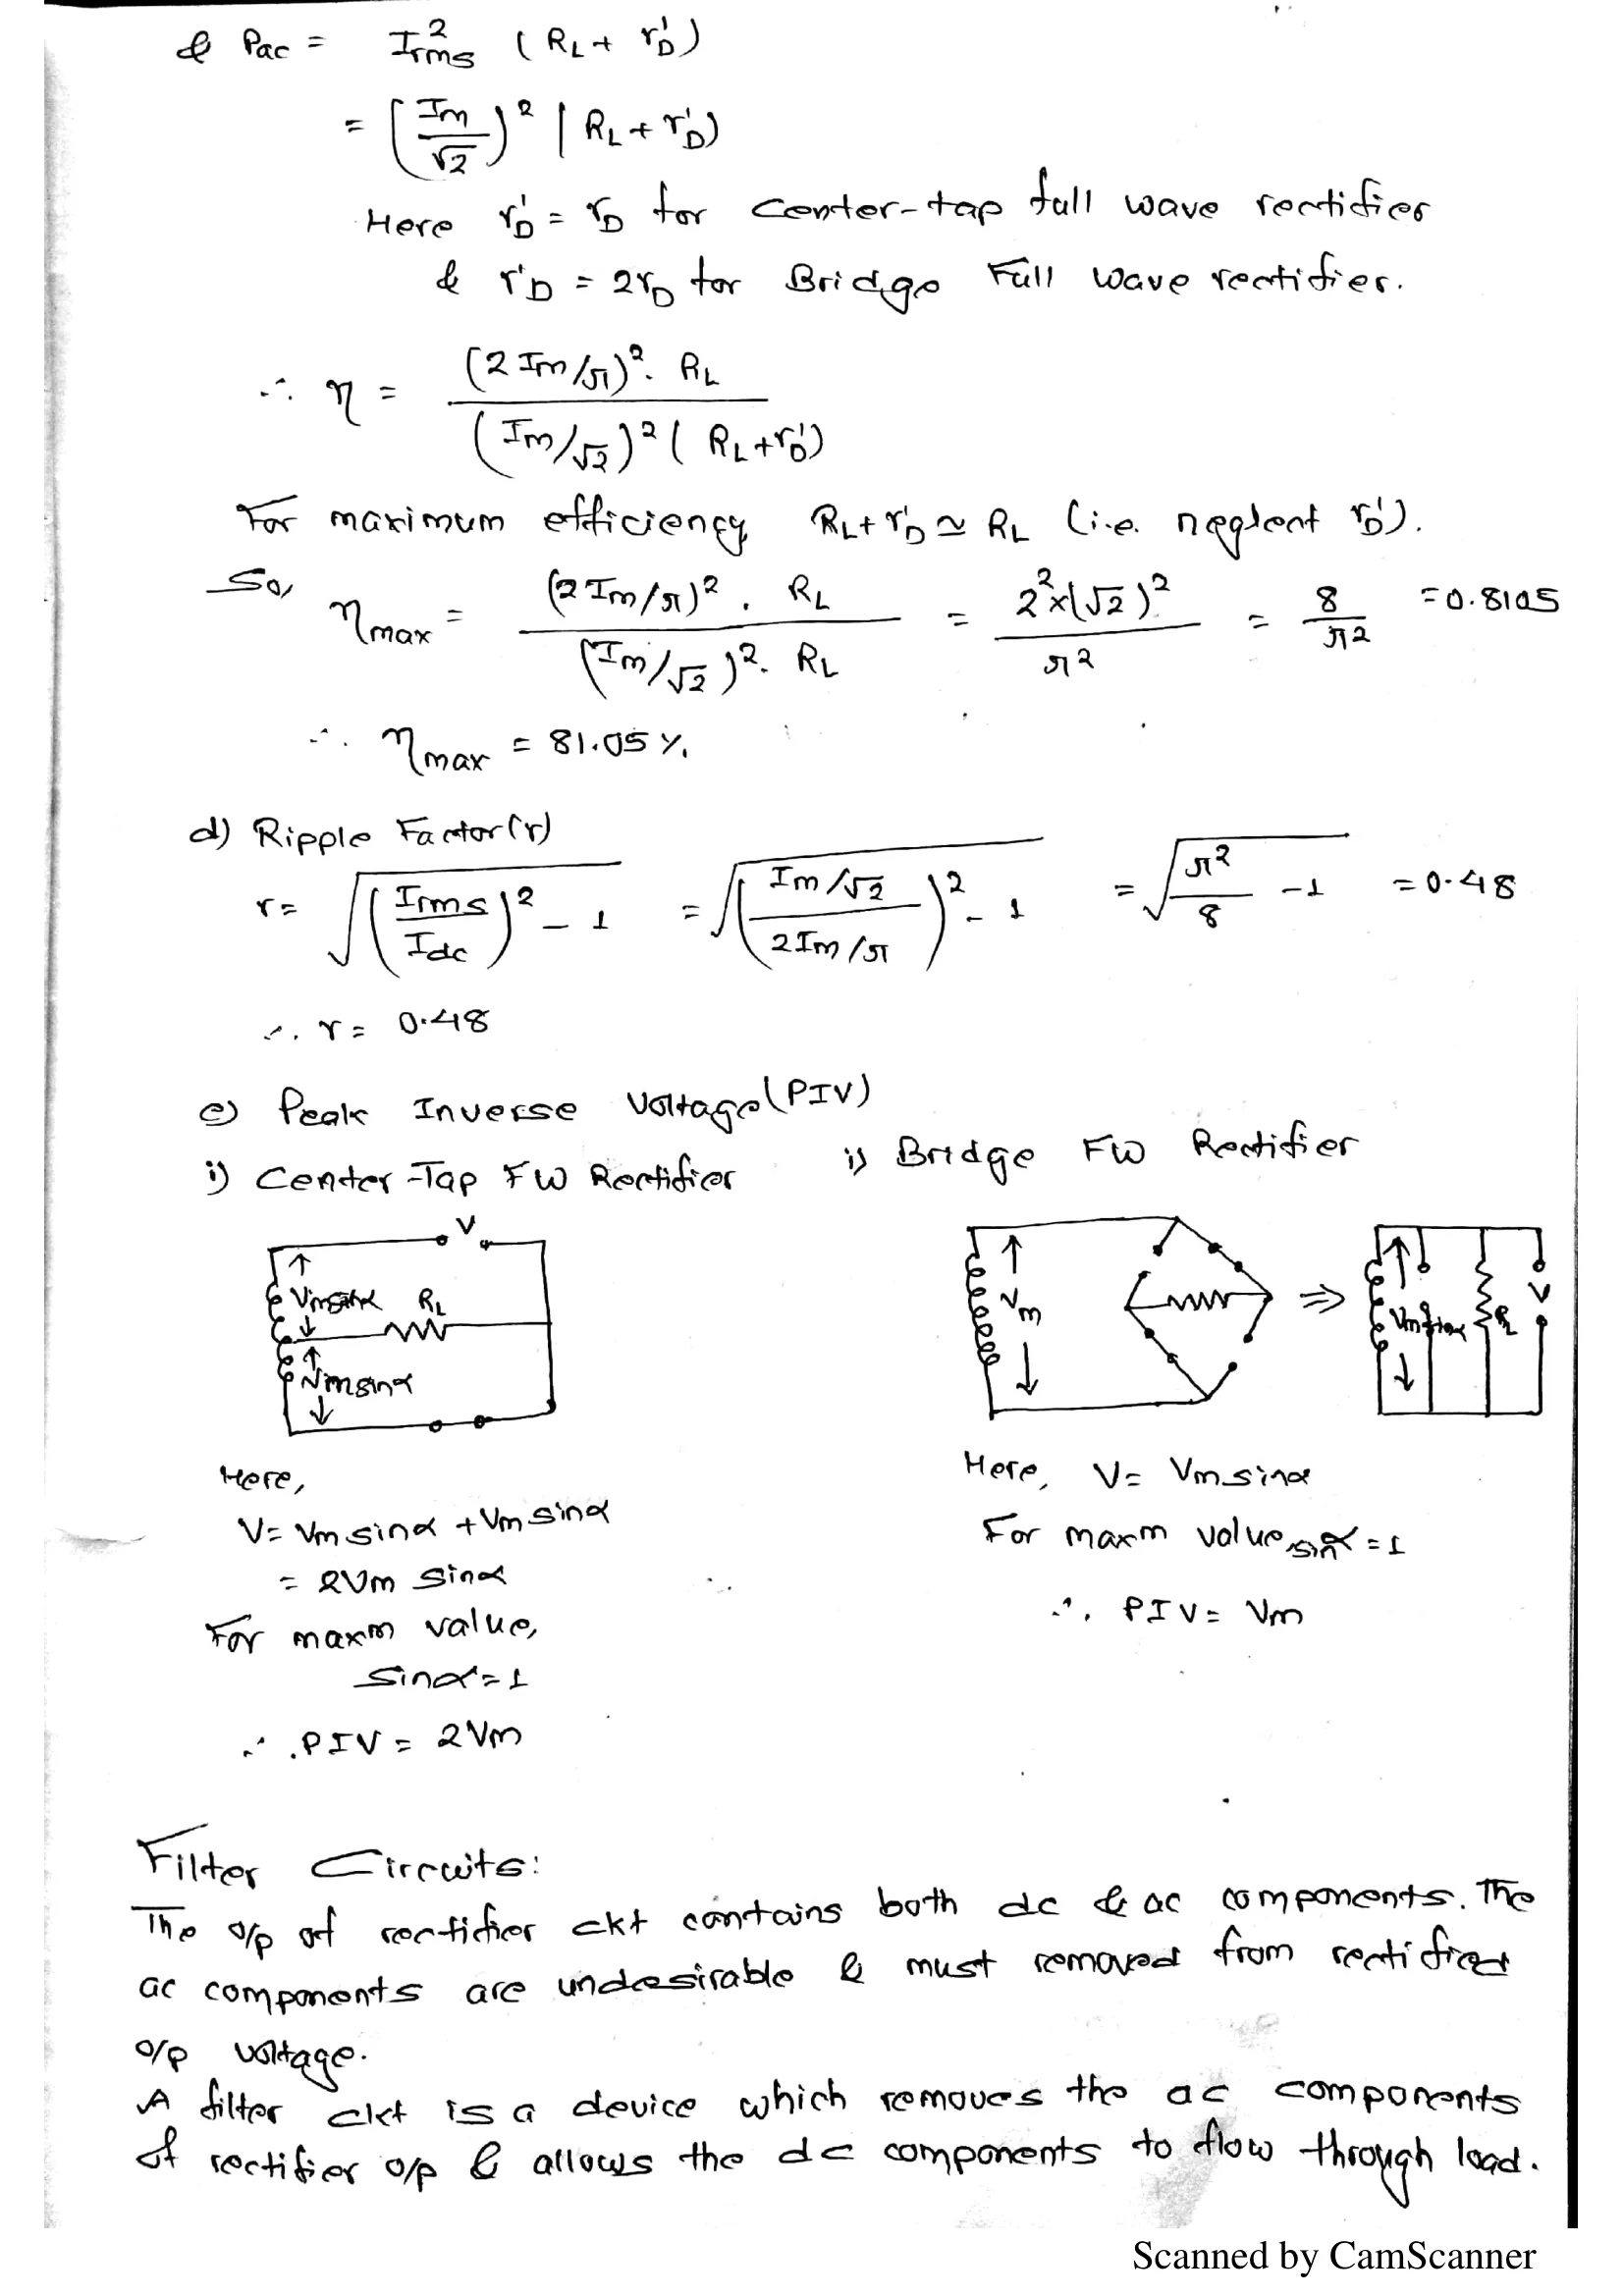 & Pac = Irms² (RL + r'D)
= (Im/√2)² (RL + r'D)
Here r'D = rD for center-tap full wave rectifier
& r'D = 2rD for Bridge Full wave rectifier.
∴ η = (2Im/π)². RL / (Im/√2)² (RL + r'D)
For maximum efficiency RL + r'D ≃ RL (i.e. neglect r'D).
So, ηmax = (2Im/π)² . RL / (Im/√2)². RL = 2²×(√2)² / π² = 8/π² = 0.8105
∴ ηmax = 81.05 %.
d) Ripple Factor (r)
r = √((Irms/Idc)² - 1) = √(((Im/√2)/(2Im/π))² - 1) = √(π²/8 - 1) = 0.48
∴ r = 0.48
e) Peak Inverse Voltage (PIV)
i) Center-Tap FW Rectifier
V
Vmsinα
RL
Vmsinα
Here,
V = Vm sinα + Vm sinα
= 2Vm sinα
For maxm value,
sinα = 1
∴ PIV = 2Vm
i) Bridge FW Rectifier
Vm
⇒
RL
V
Here, V = Vm sinα
For maxm value sinα = 1
∴ PIV = Vm
Filter Circuits:
The o/p of rectifier ckt contains both dc & ac components. The
ac components are undesirable & must removed from rectified
o/p voltage.
A filter ckt is a device which removes the ac components
of rectifier o/p & allows the dc components to flow through load.
Scanned by CamScanner